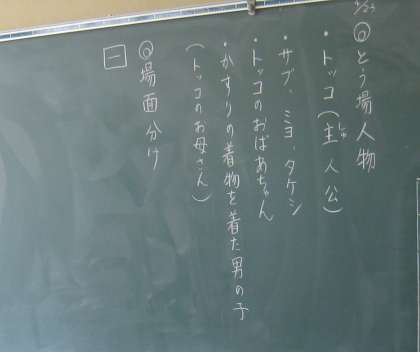 9/25
◎とう場人物
・トッコ(主人公)
しゅ
・サブ、ミヨ、タケシ
・トッコのおばあちゃん
・かすりの着物を着た男の子
(トッコのお母さん)
◎場面分け
一